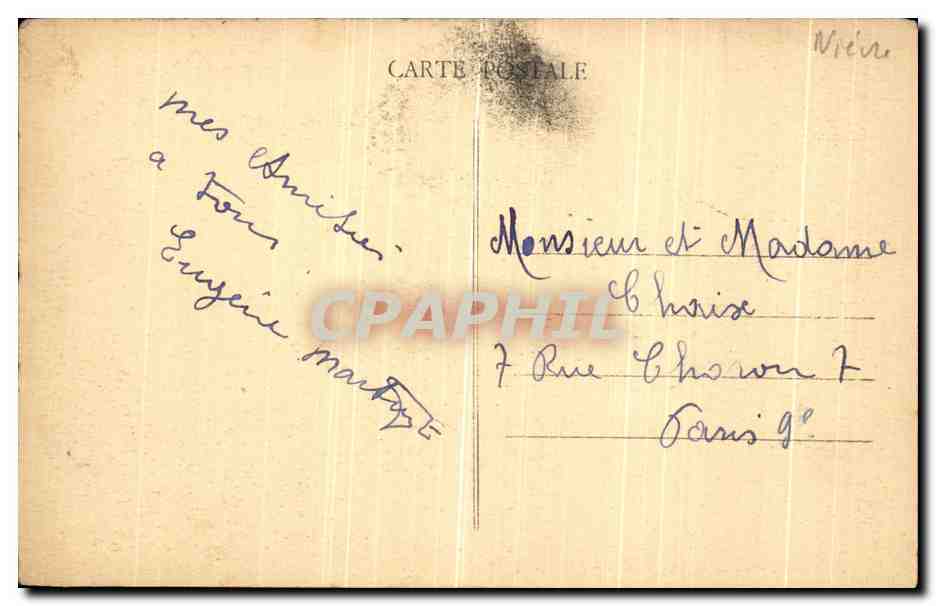 Nièvre
CARTE POSTALE
mes Amitiés
a Tous
Eugénie Martype
Monsieur et Madame
Chaix
7 Rue Choron 7
Paris 9e
CPAPHIL